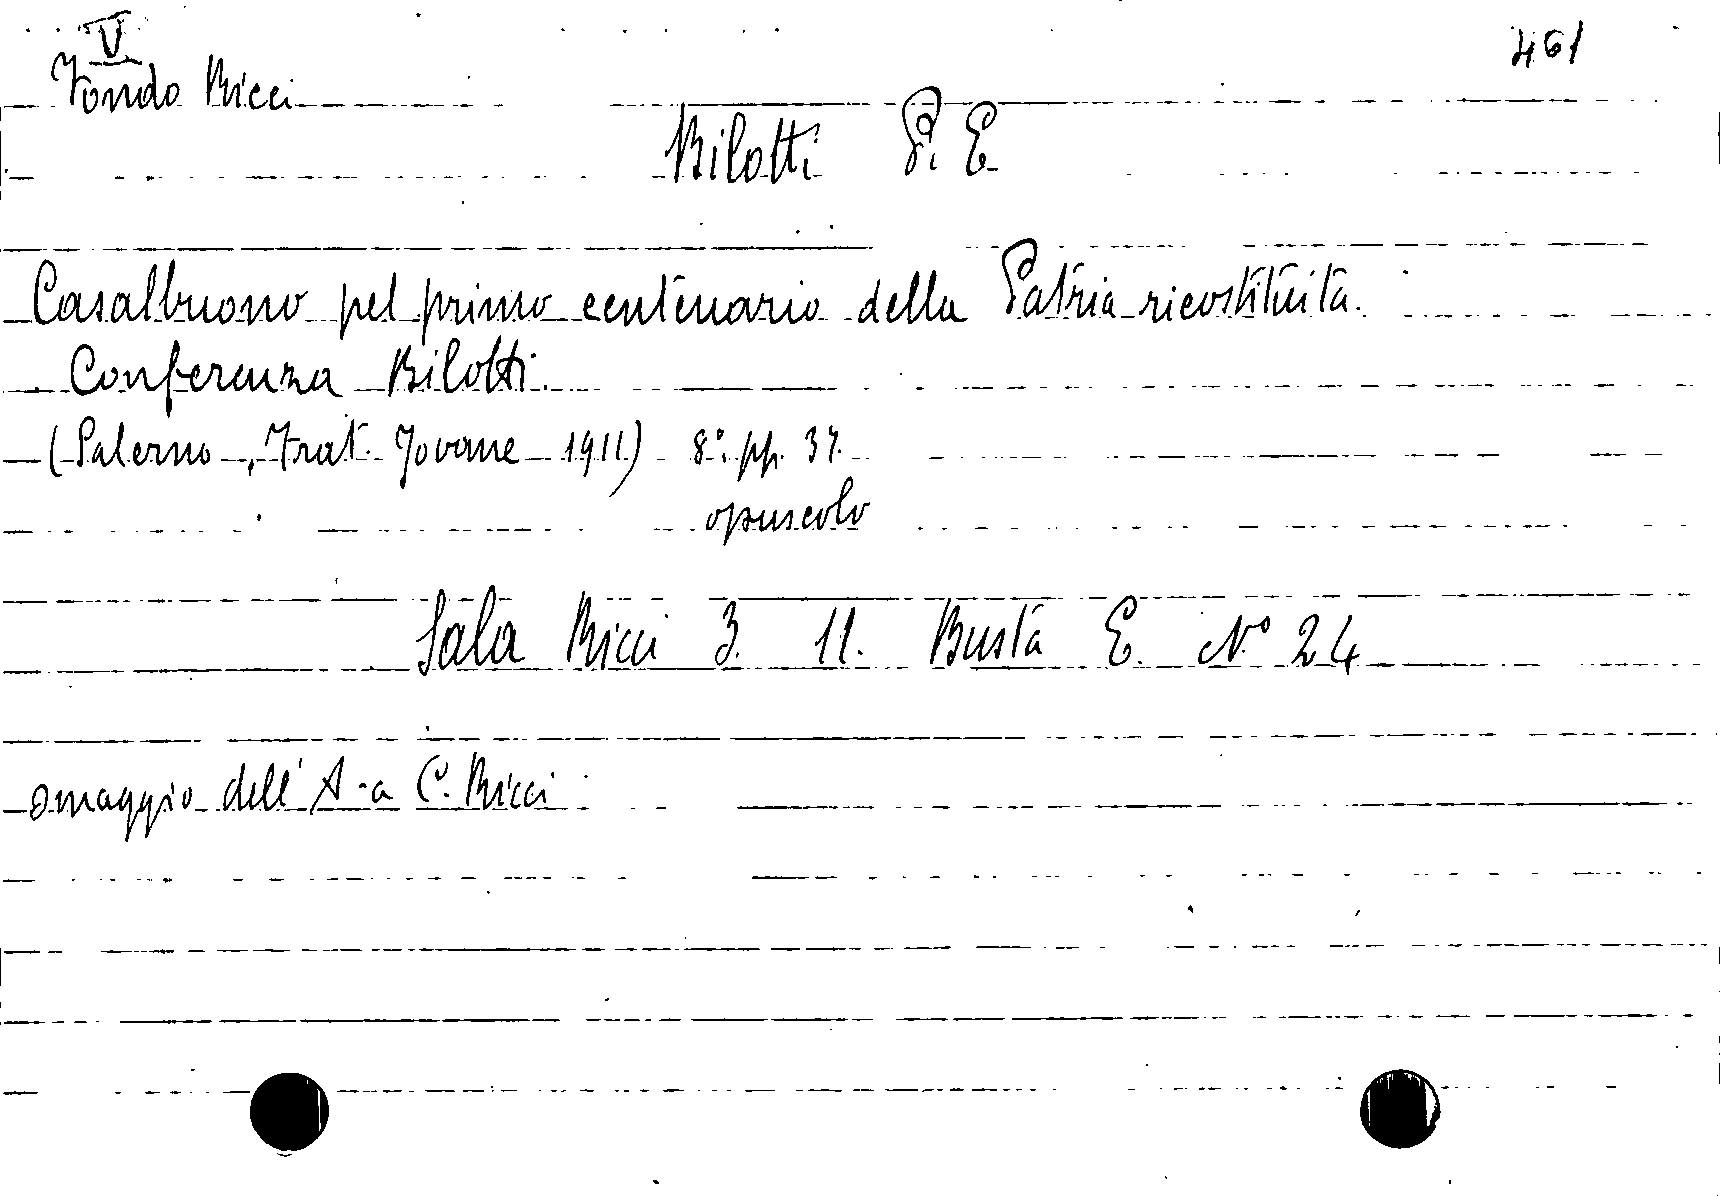 V
461
Fondo Ricci
Bilotti P. E.
Casalbuono pel primo centenario della Patria ricostituita.
Conferenza Bilotti.
(Salerno, Frat. Jovane 1911) 8º pp. 37.
opuscolo
Sala Ricci 3. 11. Busta E. Nº 24
omaggio dell'A. a C. Ricci